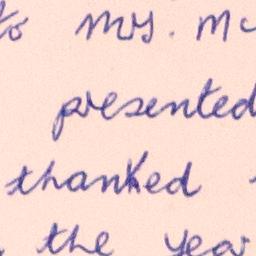 to Mrs. Mc
presented
thanked
the year